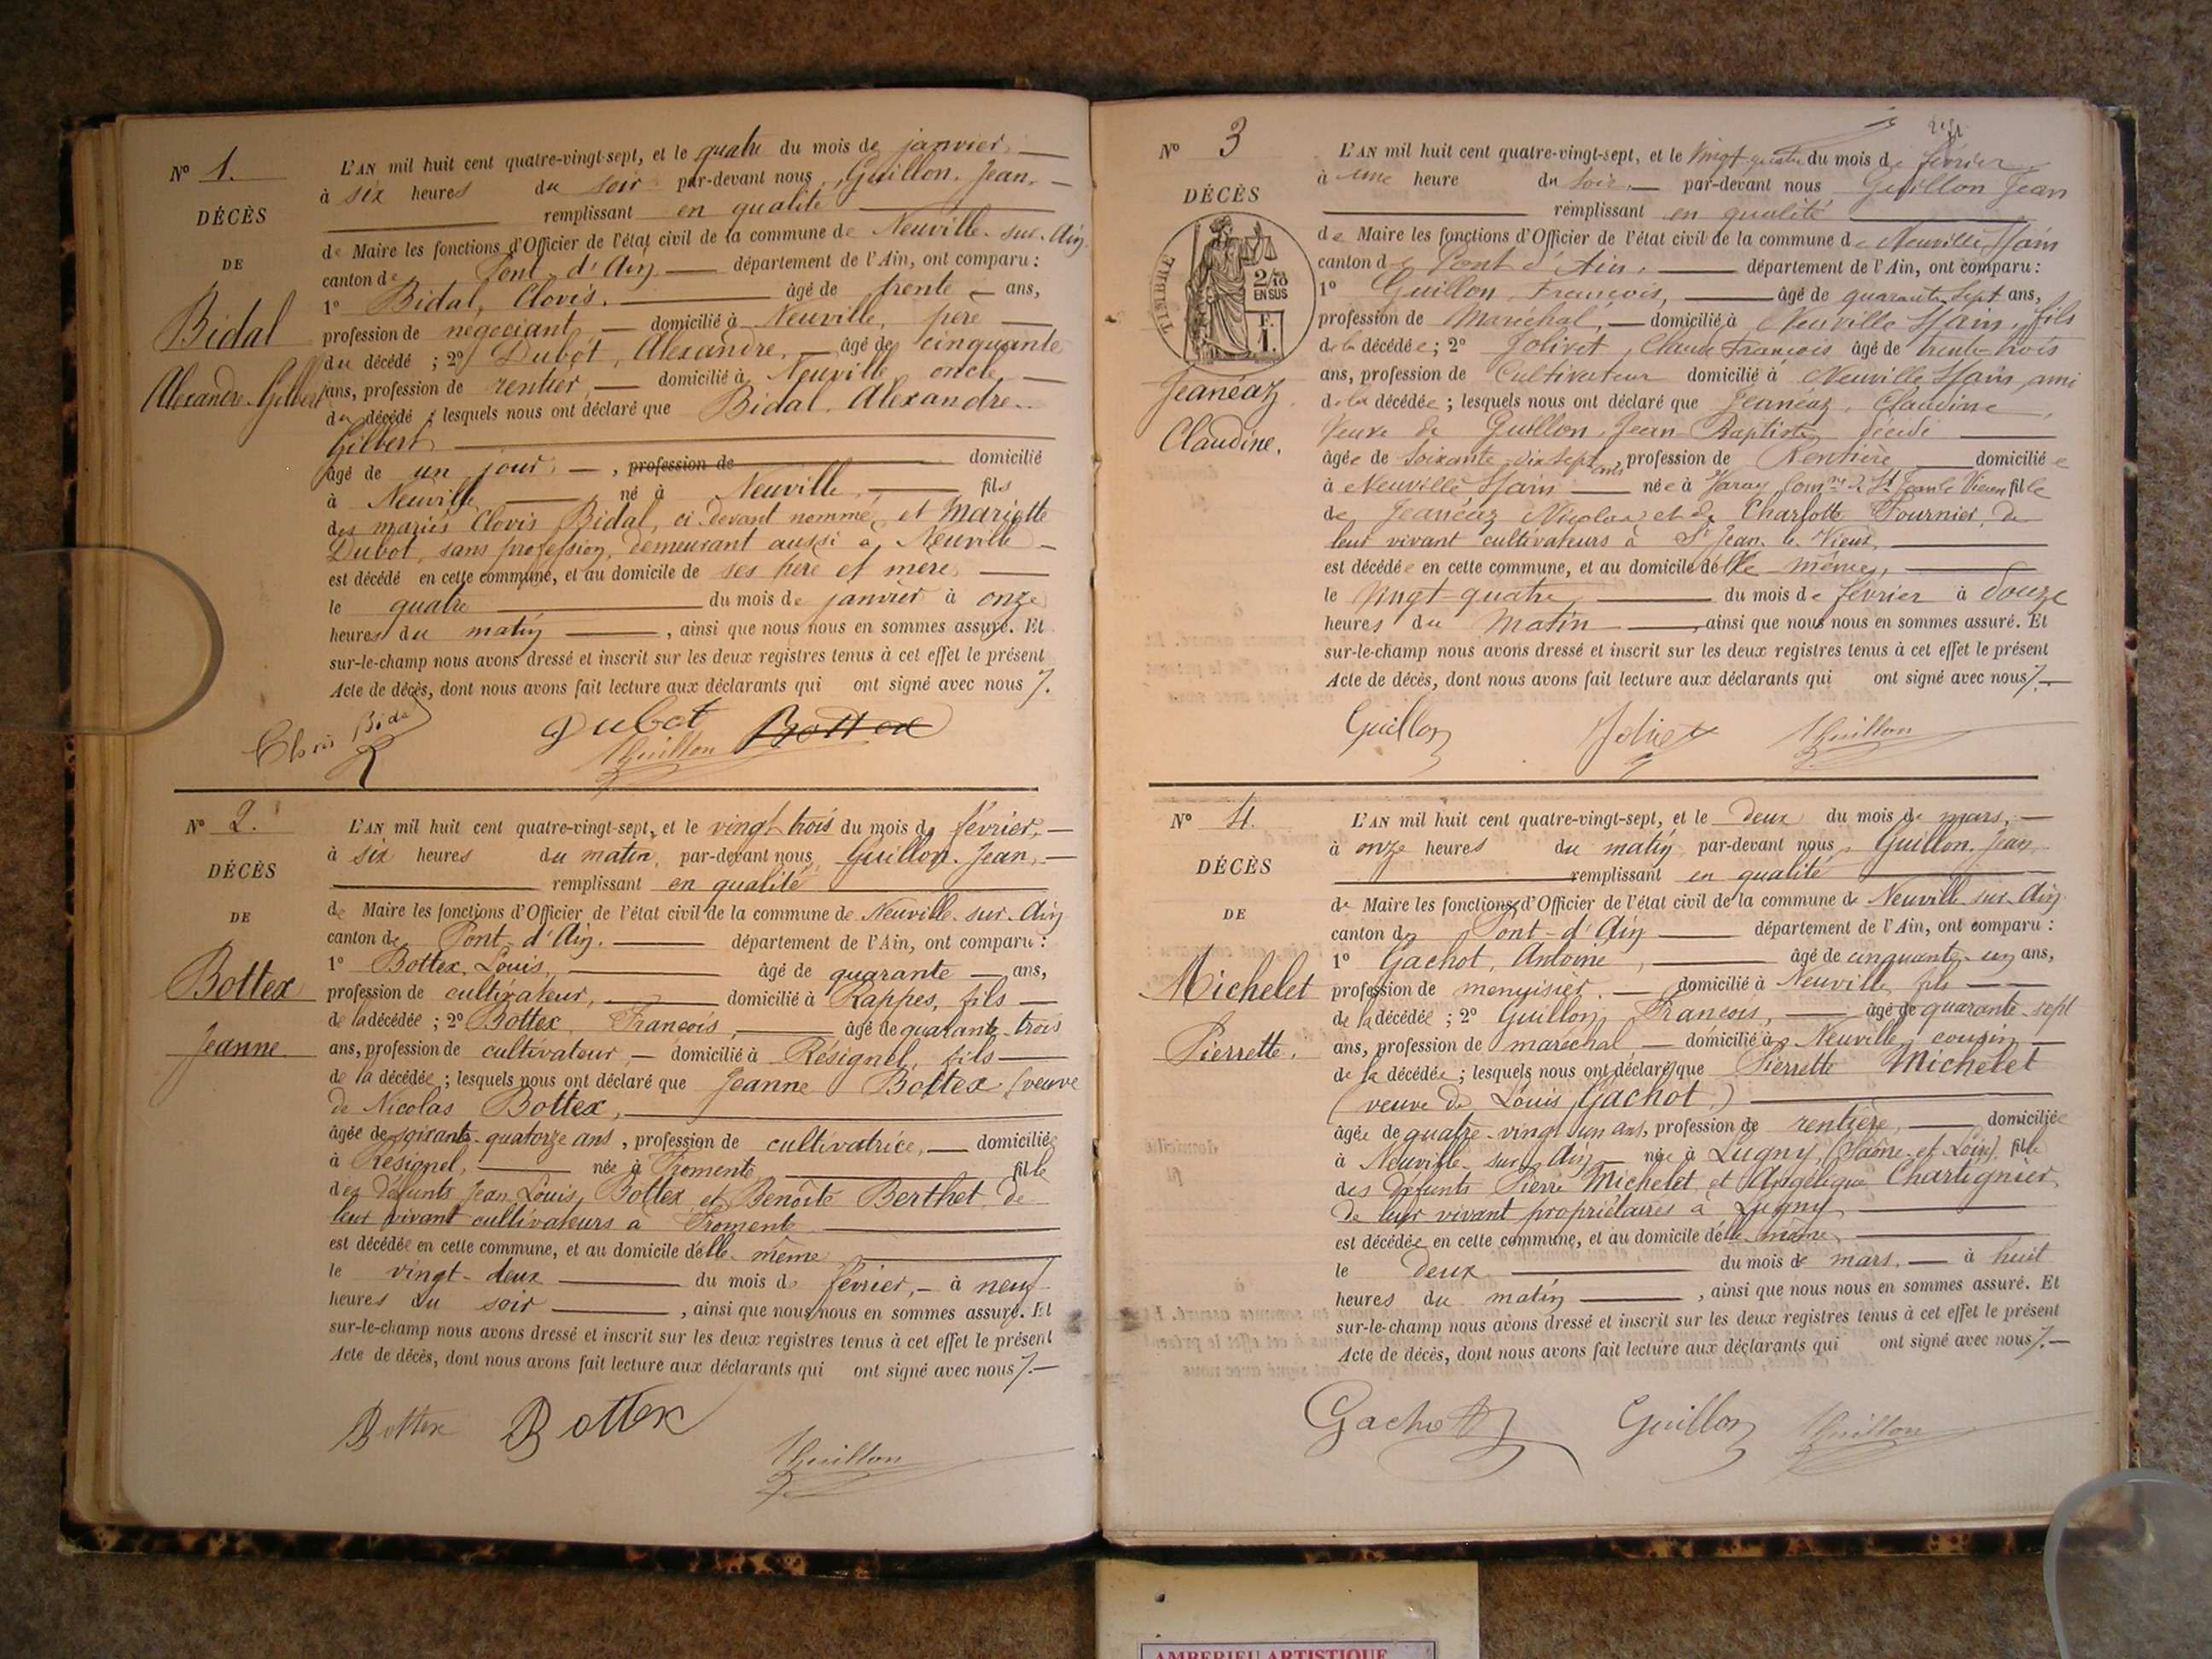 N° 1.
DÉCÈS
DE
Bidal
Alexandre-Gilbert
L'AN mil huit cent quatre-vingt-sept, et le quatre du mois de janvier,
à six heures du soir par-devant nous, Guillon, Jean,
remplissant en qualité
de Maire les fonctions d'Officier de l'état civil de la commune de Neuville-sur-Ain
canton de Pont-d'Ain département de l'Ain, ont comparu :
1° Bidal, Clovis, âgé de trente ans,
profession de négociant, domicilié à Neuville, père
du décédé ; 2° Dubot, Alexandre, âgé de cinquante
ans, profession de rentier, domicilié à Neuville, oncle
du décédé ; lesquels nous ont déclaré que Bidal, Alexandre-
Gilbert
âgé de un jour, profession de domicilié
à Neuville, né à Neuville, fils
des mariés Clovis Bidal, ci-devant nommé, et Mariette
Dubot, sans profession, demeurant aussi à Neuville
est décédé en cette commune, et au domicile de ses père et mère,
le quatre du mois de janvier à onze
heures du matin, ainsi que nous nous en sommes assuré. Et
sur-le-champ nous avons dressé et inscrit sur les deux registres tenus à cet effet le présent
Acte de décès, dont nous avons fait lecture aux déclarants qui ont signé avec nous
Clovis Bidal Dubot Bottex
Guillon
N° 2.
DÉCÈS
DE
Bottex
Jeanne
L'AN mil huit cent quatre-vingt-sept, et le vingt trois du mois de février,
à six heures du matin, par-devant nous, Guillon, Jean,
remplissant en qualité
de Maire les fonctions d'Officier de l'état civil de la commune de Neuville-sur-Ain
canton de Pont-d'Ain. département de l'Ain, ont comparu :
1° Bottex, Louis, âgé de quarante ans,
profession de cultivateur, domicilié à Rappes, fils
de la décédée ; 2° Bottex, François, âgé de quarante-trois
ans, profession de cultivateur, domicilié à Résignel, fils
de la décédée ; lesquels nous ont déclaré que Jeanne Bottex (veuve
de Nicolas Bottex,
âgée de soixante-quatorze ans, profession de cultivatrice, domiciliée
à Résignel, née à Fromente fille
des défunts Jean-Louis Bottex et Benoîte Berthet, de
leur vivant cultivateurs à Fromente
est décédée en cette commune, et au domicile d'elle-même
le vingt-deux du mois de février, à neuf
heures du soir, ainsi que nous nous en sommes assuré. Et
sur-le-champ nous avons dressé et inscrit sur les deux registres tenus à cet effet le présent
Acte de décès, dont nous avons fait lecture aux déclarants qui ont signé avec nous
Bottex Bottex
Guillon
N° 3
DÉCÈS
TIMBRE
2/10
EN SUS
F.
1.
Jeanéaz
Claudine.
L'AN mil huit cent quatre-vingt-sept, et le vingt-quatre du mois de février
à une heure du soir, par-devant nous Guillon Jean
remplissant en qualité
de Maire les fonctions d'Officier de l'état civil de la commune de Neuville s/ain
canton de Pont d'Ain, département de l'Ain, ont comparu :
1° Guillon, François, âgé de quarante-sept ans,
profession de Maréchal, domicilié à Neuville s/ain, fils
de la décédée ; 2° Jolivet, Claude François âgé de trente-trois
ans, profession de Cultivateur domicilié à Neuville s/ain, ami
de la décédée ; lesquels nous ont déclaré que Jeanéaz, Claudine,
Veuve de Guillon, Jean-Baptiste, décédé
âgée de soixante-dix sept ans, profession de Rentière domiciliée
à Neuville s/ain née à Varay Comne de St Jean le Vieux fille
de Jeanéaz Nicolas et de Charlotte Fournier, de
leur vivant cultivateurs à St Jean-le-Vieux,
est décédée en cette commune, et au domicile d'elle-même,
le Vingt-quatre du mois de février à Douze
heures du Matin, ainsi que nous nous en sommes assuré. Et
sur-le-champ nous avons dressé et inscrit sur les deux registres tenus à cet effet le présent
Acte de décès, dont nous avons fait lecture aux déclarants qui ont signé avec nous
Guillon Jolivet Guillon
N° 4.
DÉCÈS
DE
Michelet
Pierrette.
L'AN mil huit cent quatre-vingt-sept, et le deux du mois de mars,
à onze heures du matin par-devant nous, Guillon, Jean
remplissant en qualité
de Maire les fonctions d'Officier de l'état civil de la commune de Neuville-sur-Ain
canton de Pont-d'Ain département de l'Ain, ont comparu :
1° Gachot, Antoine, âgé de cinquante-un ans,
profession de menuisier, domicilié à Neuville, fils
de la décédée ; 2° Guillon, François, âgé de quarante-sept
ans, profession de maréchal domicilié à Neuville, cousin
de la décédée ; lesquels nous ont déclaré que Pierrette Michelet
(veuve de Louis Gachot)
âgée de quatre-vingt-un ans, profession de rentière, domiciliée
à Neuville-sur-Ain née à Lugny, (Saône-et-Loire), fille
des défunts Pierre Michelet et Angélique Chartignier,
de leur vivant propriétaires à Lugny
est décédée en cette commune, et au domicile d'elle-même,
le deux du mois de mars, à huit
heures du matin, ainsi que nous nous en sommes assuré. Et
sur-le-champ nous avons dressé et inscrit sur les deux registres tenus à cet effet le présent
Acte de décès, dont nous avons fait lecture aux déclarants qui ont signé avec nous
Gachot Guillon Guillon
AMBERIEU ARTISTIQUE